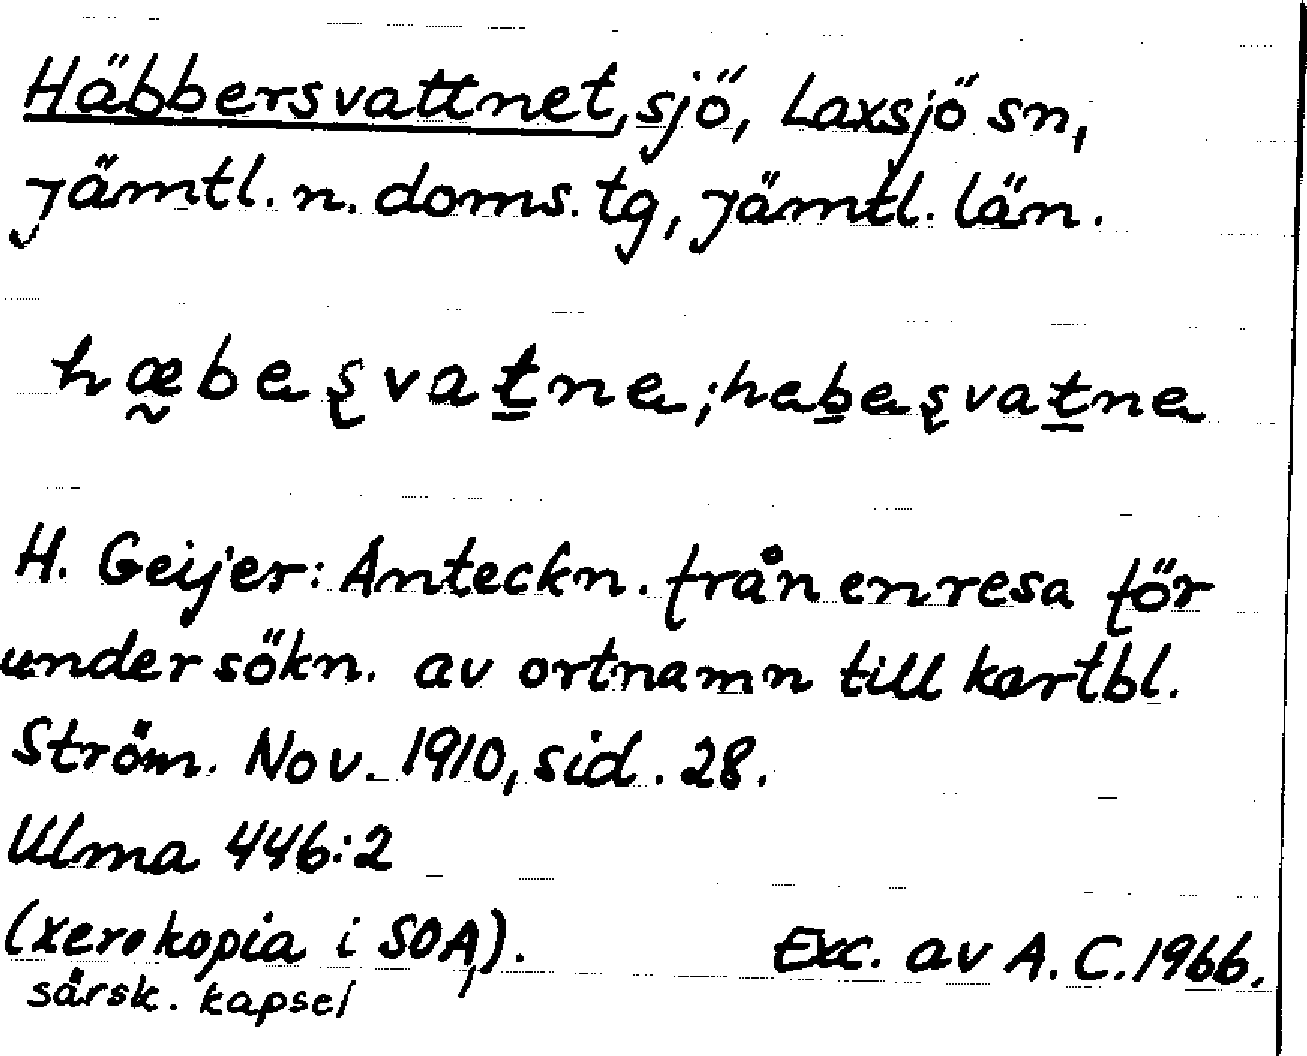 Häbbersvattnet, sjö, Laxsjö sn,
Jämtl. n. doms. tg, Jämtl. län.
hæ̰beʂvaṯne; haḇeʂvaṯne
H. Geijer: Anteckn. från en resa för
undersökn. av ortnamn till kartbl.
Ström. Nov. 1910, sid. 28.
Ulma 446:2
(xerokopia i SOA). Exc. av A.C. 1966.
särsk. kapsel